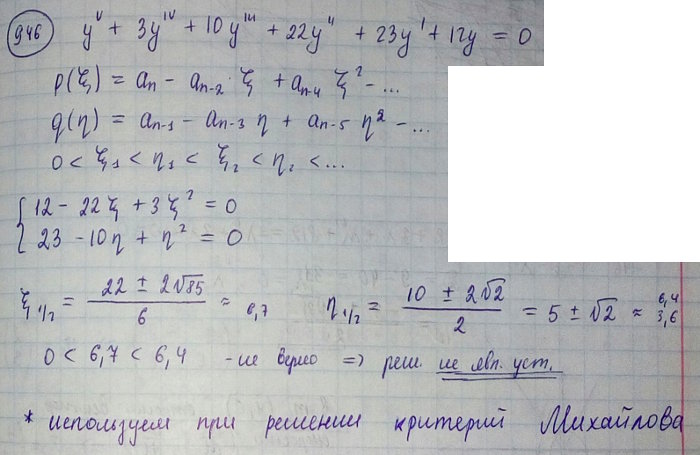 946 y^V + 3y^IV + 10y^III + 22y^II + 23y^I + 12y = 0
p(ξ) = a_n - a_{n-2}·ξ + a_{n-4} ξ² - ...
q(η) = a_{n-1} - a_{n-3} η + a_{n-5} η² - ...
0 < ξ_1 < η_1 < ξ_2 < η_2 < ...
{ 12 - 22ξ + 3ξ² = 0
23 - 10η + η² = 0
ξ_{1/2} = (22 ± 2√85)/6 ≈ 6,7 η_{1/2} = (10 ± 2√2)/2 = 5 ± √2 ≈ 6,4 3,6
0 < 6,7 < 6,4 - не верно => реш. не явл. уст.
* используем при решении критерий Михайлова